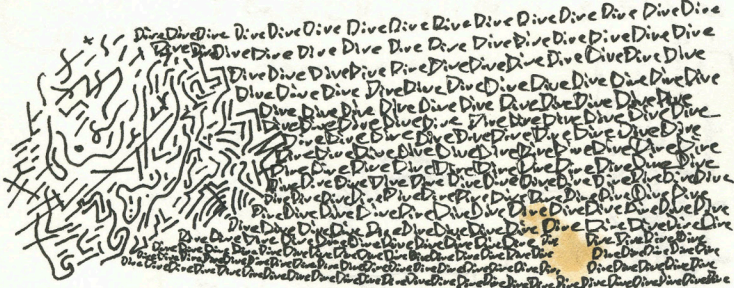 DiveDiveDive DiveDive Dive DiveDiveDive DiveDive Dive Dive DiveDive
DiveDiveDiveDive Dive Dive Dive Dive Dive DiveDive Dive Dive Dive
DiveDive DiveDive DiveDiveDive DiveDiveDive DiveDive Dive
DiveDive Dive DiveDiveDive DiveDive DiveDiveDive Dive
DiveDive Dive DiveDive Dive DiveDiveDive DiveDive
DiveDiveDiveDiveDive Dive DiveDiveDiveDiveDive
DiveDiveDiveDive DiveDiveDiveDiveDive DiveDive
DiveDive DiveDiveDiveDiveDiveDiveDiveDiveDive
DiveDiveDiveDive DiveDiveDiveDiveDiveDive Dive
DiveDiveDiveDiveDiveDiveDiveDiveDiveDiveDiveDive
DiveDiveDive DiveDiveDiveDiveDiveDiveDiveDive
DiveDiveDiveDiveDiveDiveDiveDiveDiveDiveDiveDive
DiveDiveDiveDiveDiveDiveDiveDive DiveDiveDiveDive
DiveDiveDiveDive DiveDiveDiveDiveDiveDive Dive DiveDiveDiveDive
DiveDiveDiveDiveDiveDiveDiveDiveDiveDiveDive DiveDiveDiveDive
DiveDiveDiveDiveDiveDiveDiveDiveDiveDiveDiveDive DiveDiveDiveDive
DiveDiveDiveDiveDiveDiveDiveDiveDiveDiveDiveDiveDiveDiveDiveDive